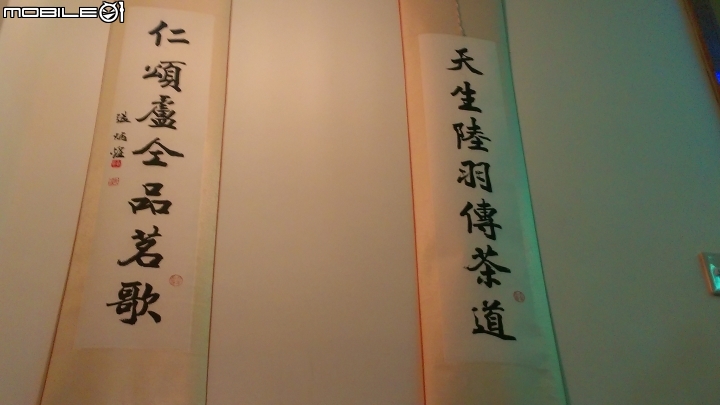 MOBILE01
天生陸羽傳茶道
仁頌盧仝品茗歌